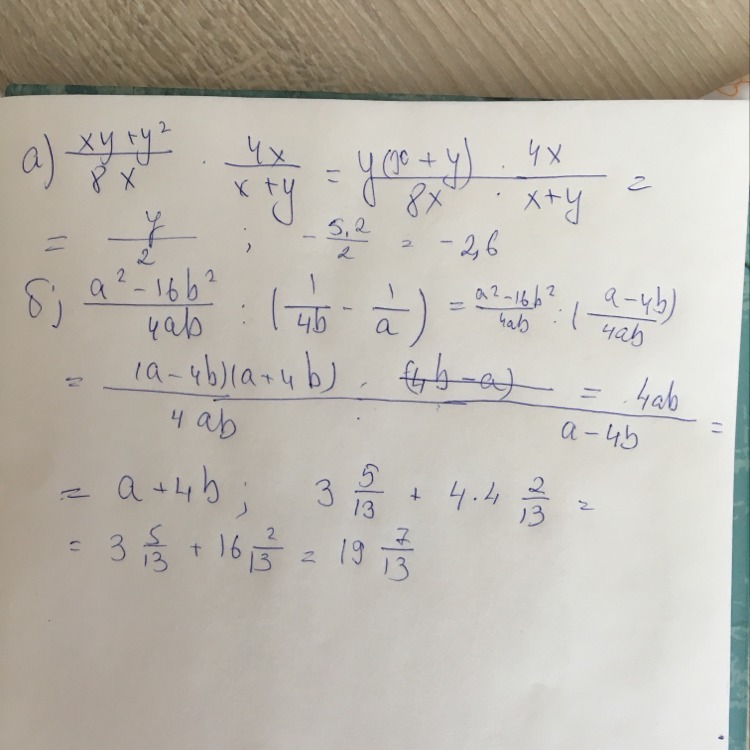 а) (xy+y²)/(8x) · (4x)/(x+y) = (y(x+y))/(8x) · (4x)/(x+y) =
= y/2 ; -5,2/2 = -2,6
б) (a²-16b²)/(4ab) : (1/(4b) - 1/a) = (a²-16b²)/(4ab) : ((a-4b)/(4ab))
= ((a-4b)(a+4b))/(4ab) · (4b-a) = 4ab/(a-4b) =
= a+4b ; 3 5/13 + 4·4 2/13 =
= 3 5/13 + 16 2/13 = 19 7/13